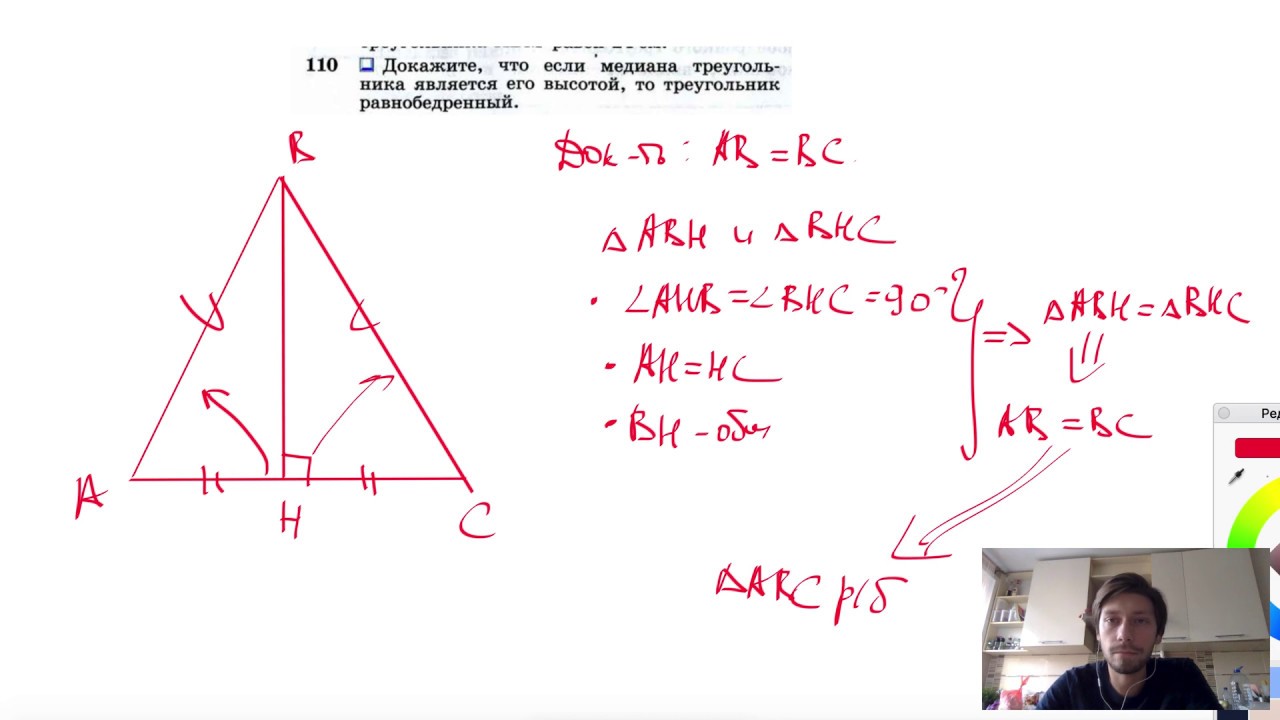 110 Докажите, что если медиана треуголь-
ника является его высотой, то треугольник
равнобедренный.
B
Док-ть: AB = BC
△ABH и △BHC
• ∠AHB = ∠BHC = 90°
⇒ △ABH = △BHC
• AH = HC
• BH - общ
AB = BC
A
H
C
△ABC р/б
Ред